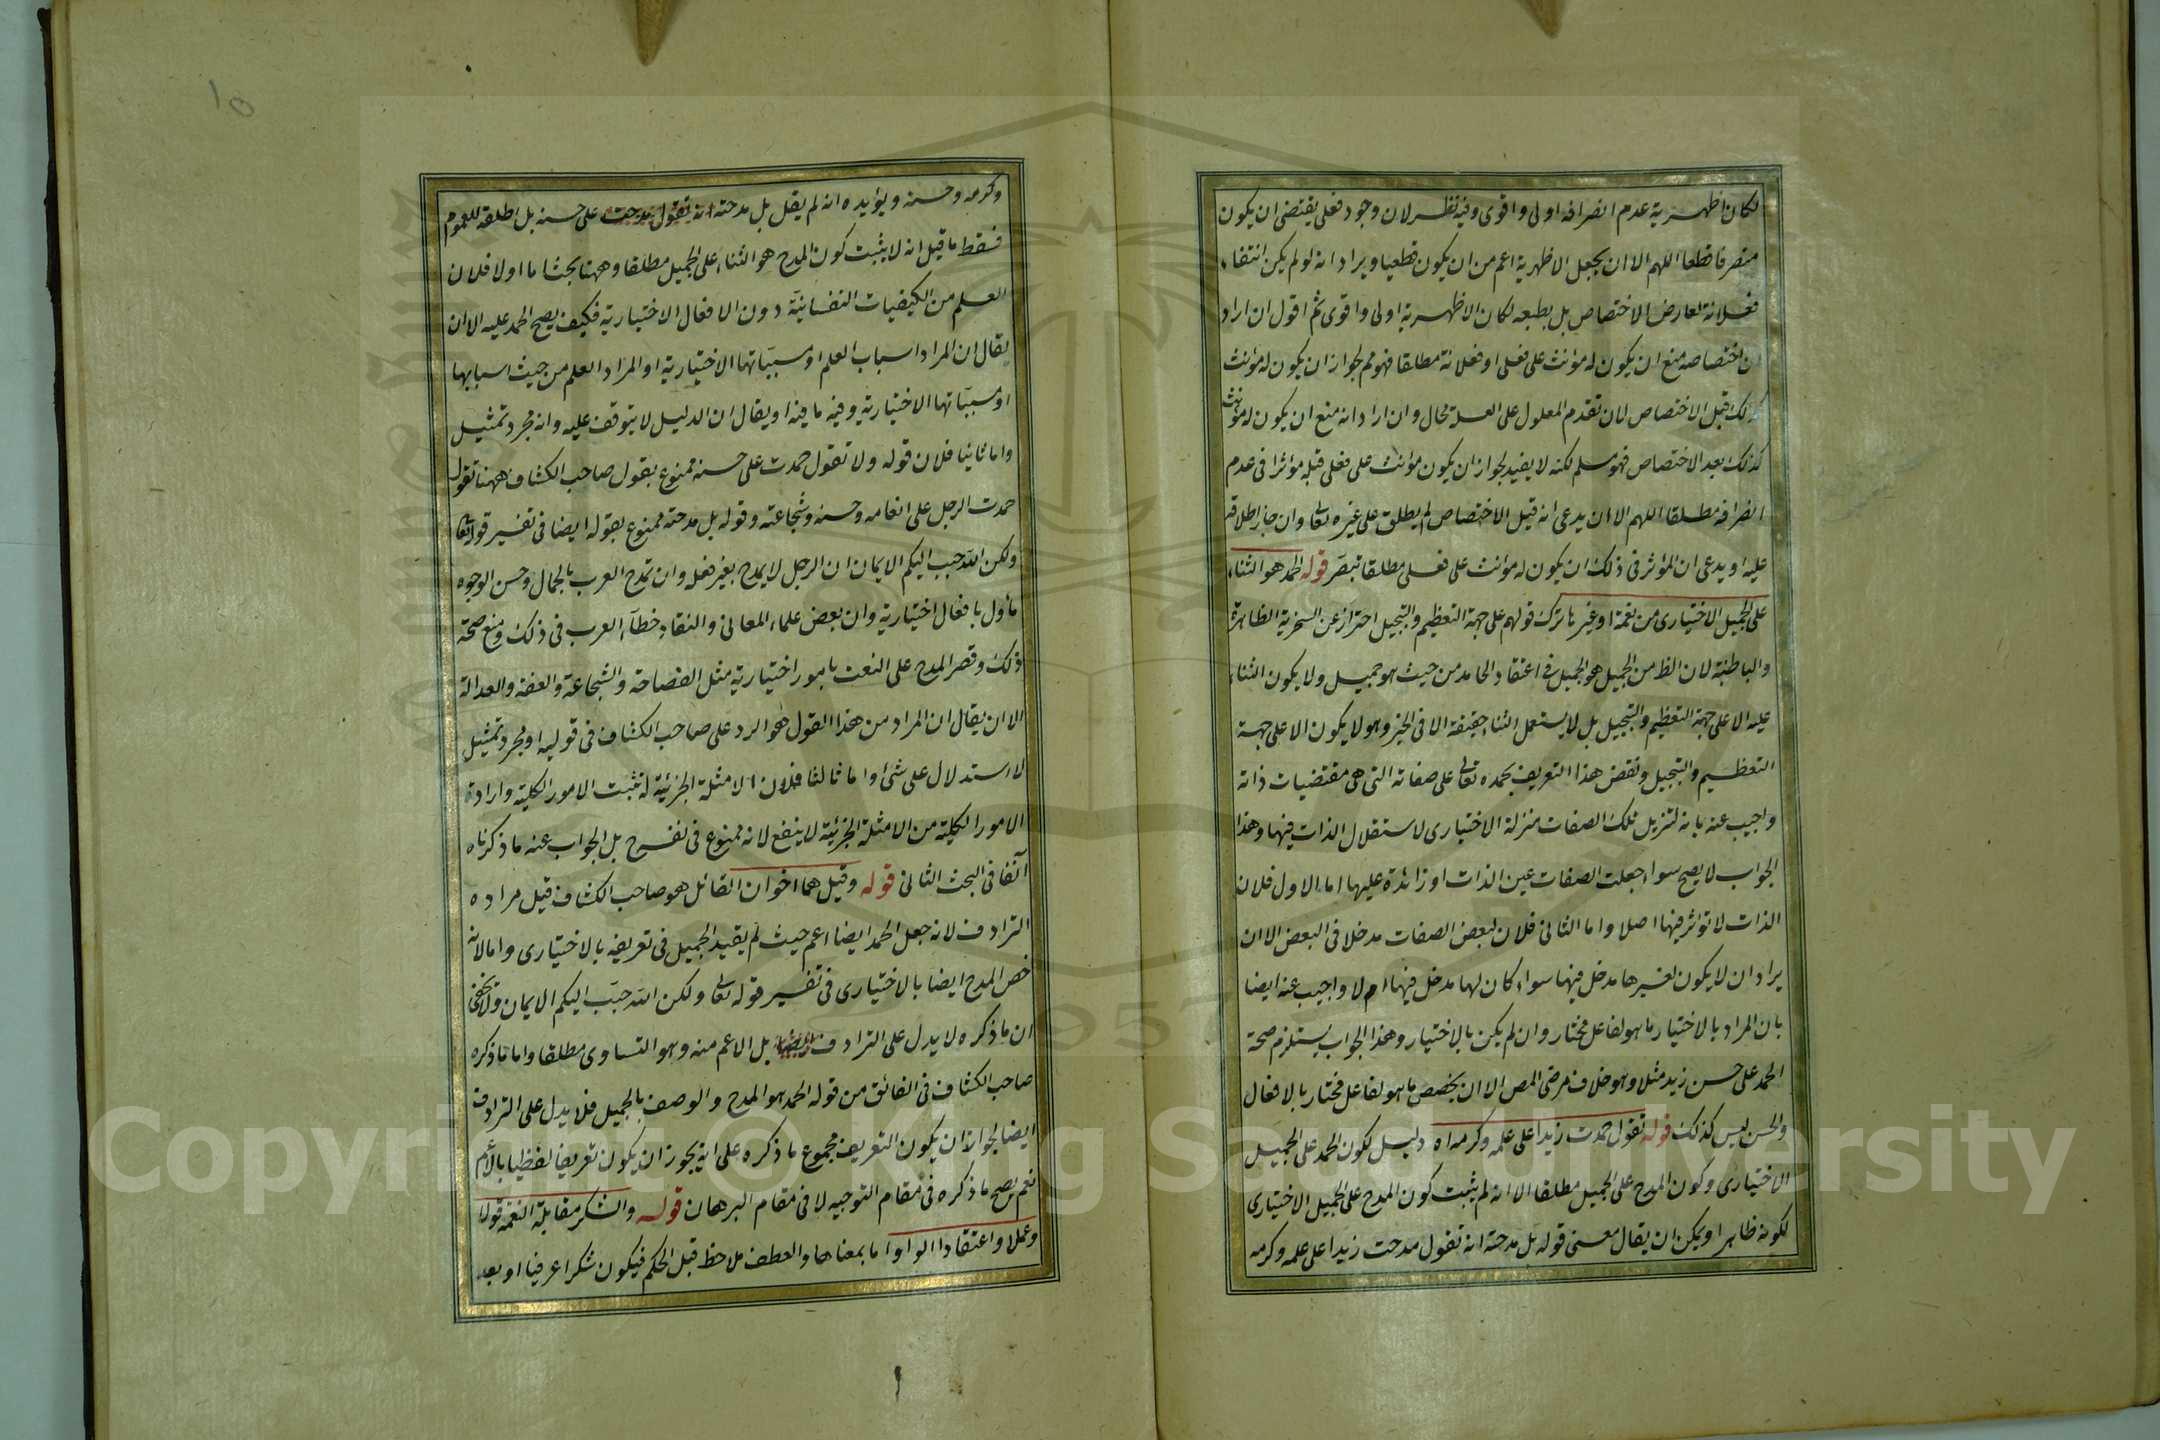 لكان اظهرية عدم انصرافه اولى واقوى وفيه نظر لان وجود فعلى يقتضى ان يكون
منصرفا قطعا اللهم الا ان يجعل الاظهرية اعم من ان يكون قطعيا ويراد انه لو لم يكن انتفاء
فعلانة لعارض الاختصاص بل بطبعه لكان الاظهرية اولى واقوى ثم اقول ان اراد
ان اختصاصه منع ان يكون له مؤنث على فعلى او فعلانة مطلقا فهو مم لجواز ان يكون له مؤنث
كذلك قبل الاختصاص لان تقدم المعلول على العلة محال وان اراد انه منع ان يكون له مؤنث
كذلك بعد الاختصاص فهو مسلم لكنه لا يفيد لجواز ان يكون مؤنث على فعلى قبله مؤثرا فى عدم
انصرافه مطلقا اللهم الا ان يدعى انه قبل الاختصاص لم يطلق على غيره تعالى وان جاز اطلاقه
عليه او يدعى ان المؤثر فى ذلك ان يكون له مؤنث على فعلى مطلقا تبصر قوله الحمد هو الثناء
على الجميل الاختيارى من نعمة او غيرها ترك قولهم على جهة التعظيم والتبجيل احتراز عن السخرية الظاهرة
والباطنة لان الظ من الجميل هو الجميل فى اعتقاد الحامد من حيث هو جميل ولا يكون الثناء
عليه الا على جهة التعظيم والتبجيل بل لا يستعمل الثناء حقيقة الا فى الخير وهو لا يكون الا على جهة
التعظيم والتبجيل ونقض هذا التعريف بحمده تعالى على صفاته التى هى مقتضيات ذاته
واجيب عنه بانه لتنزيل تلك الصفات منزلة الاختيارى لاستقلال الذات فيها وهذا
الجواب لا يصح سواء جعلت الصفات عين الذات او زائدة عليها اما الاول فلان
الذات لا تؤثر فيها اصلا واما الثانى فلان لبعض الصفات مدخلا فى البعض الا ان
يراد ان لا يكون لغيرها مدخل فيها سواء كان لها مدخل فيها ام لا واجيب عنه ايضا
بان المراد بالاختيار ما هو لفاعل مختار وان لم يكن بالاختيار وهذا الجواب يستلزم صحة
الحمد على حسن زيد مثلا وهو خلاف مرضى المص الا ان يخصص ما هو لفاعل مختار بالافعال
والحسن ليس كذلك قوله تقول حمدت زيدا على علمه وكرمه اه دليل لكون الحمد على الجميل
الاختيارى وكون المدح على الجميل مطلقا الا انه لم يثبت كون المدح على الجميل الاختيارى
لكونه ظاهرا ويمكن ان يقال معنى قوله بل مدحته انه تقول مدحت زيدا على علمه وكرمه
وكرمه وحسنه ويؤيده انه لم يقل بل مدحته انه تقول مدحت على حسنه بل اطلقه للعموم
فسقط ما قيل انه لا يثبت كون المدح هو الثناء على الجميل مطلقا وههنا بحث اما اولا فلان
العلم من الكيفيات النفسانية دون الافعال الاختيارية فكيف يصح الحمد عليه الا ان
يقال ان المراد اسباب العلم او مسبباتها الاختيارية او المراد العلم من حيث اسبابها
او مسبباتها الاختيارية وفيه ما فيه او يقال ان الدليل لا يتوقف عليه وانه مجرد تمثيل
واما ثانيا فلان قوله ولا تقول حمدت على حسنه ممنوع بقول صاحب الكشاف ههنا تقول
حمدت الرجل على انعامه وحسنه وشجاعته وقوله بل مدحته ممنوع بقوله ايضا فى تفسير قوله تعالى
ولكن الله حبب اليكم الايمان ان الرجل لا يمدح بغير فعله وان تمدح العرب بالجمال وحسن الوجوه
مأول بافعال اختيارية وان بعض علماء المعانى والنقاد خطأ العرب فى ذلك ومنع صحة
ذلك وقصر المدح على النعت بامور اختيارية مثل الفصاحة والشجاعة والعفة والعدالة
الا ان يقال ان المراد من هذا القول هو الرد على صاحب الكشاف فى قوليه او مجرد تمثيل
لا استدلال على شئ واما ثالثا فلان الامثلة الجزئية لا تثبت الامور الكلية وارادة
الامور الكلية من الامثلة الجزئية لا ينفع لانه ممنوع بل الجواب عنه ما ذكرناه
آنفا فى البحث الثانى قوله وقيل هما اخوان القائل هو صاحب الكشاف قيل مراده
الترادف لانه جعل الحمد ايضا اعم حيث لم يقيد الجميل فى تعريفه بالاختيارى واما لانه
خص المدح ايضا بالاختيارى فى تفسير قوله تعالى ولكن الله حبب اليكم الايمان ولا يخفى
ان ما ذكره لا يدل على الترادف بل الاعم منه وهو التساوى مطلقا واما ما ذكره
صاحب الكشاف فى الفائق من قوله الحمد هو المدح والوصف بالجميل فلا يدل على الترادف
ايضا لجواز ان يكون التعريف مجموع ما ذكره على انه يجوز ان يكون تعريفا لفظيا بالاعم
نعم يصح ما ذكره فى مقام التوجيه لا فى مقام البرهان قوله والشكر مقابلة النعمة قولا
وعملا واعتقادا الواو اما بمعناها والعطف ملاحظ قبل الحكم فيكون شكرا عرفيا او بعد
Copyright © King Saud University
1957